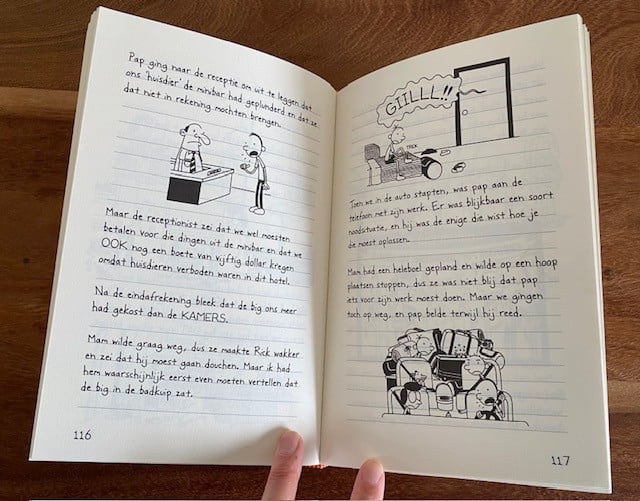 Pap ging naar de receptie om uit te leggen dat
ons 'huisdier' de minibar had geplunderd en dat ze
dat niet in rekening mochten brengen.
Maar de receptionist zei dat we wel moesten
betalen voor die dingen uit de minibar en dat we
OOK nog een boete van vijftig dollar kregen
omdat huisdieren verboden waren in dit hotel.
Na de eindafrekening bleek dat de big ons meer
had gekost dan de KAMERS.
Mam wilde graag weg, dus ze maakte Rick wakker
en zei dat hij moest gaan douchen. Maar ik had
hem waarschijnlijk eerst even moeten vertellen dat
de big in de badkuip zat.
116
GIILLL!!
TREK
Toen we in de auto stapten, was pap aan de
telefoon met zijn werk. Er was blijkbaar een soort
noodsituatie, en hij was de enige die wist hoe je
die moest oplossen.
Mam had een heleboel gepland en wilde op een hoop
plaatsen stoppen, dus ze was niet blij dat pap
iets voor zijn werk moest doen. Maar we gingen
toch op weg, en pap belde terwijl hij reed.
117